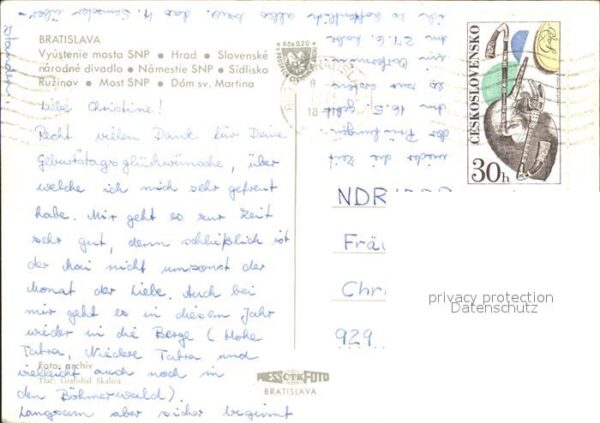 BRATISLAVA
Vyústenie mosta SNP • Hrad • Slovenské
národné divadlo • Námestie SNP • Sídlisko
Ružinov • Most SNP • Dóm sv. Martina
Liebe Christine!
Recht vielen Dank für Deine
Geburtstagsglückwünsche, über
welche ich mich sehr gefreut
habe. Mir geht es zur Zeit
sehr gut, denn schließlich ist
der Mai nicht umsonst der
Monat der Liebe. Auch bei
mir geht es in diesem Jahr
wieder in die Berge (Hohe
Tatra, Niedere Tatra und
vielleicht auch noch in
den Böhmerwald).
Langsam aber sicher beginnt
wieder die Zeit
der Prüfungen.
Am 16.5. geht
es zur
am 27.6. habe
ich es hoffentlich alles
das 4. Semester über-
standen.
Foto: archív
Tlač: Grafobal Skalica
PRESSFOTO
ČTK
BRATISLAVA
Kčs 0,20
18
ČESKOSLOVENSKO
30h
NDR
Frä
Chr
929
privacy protection
Datenschutz